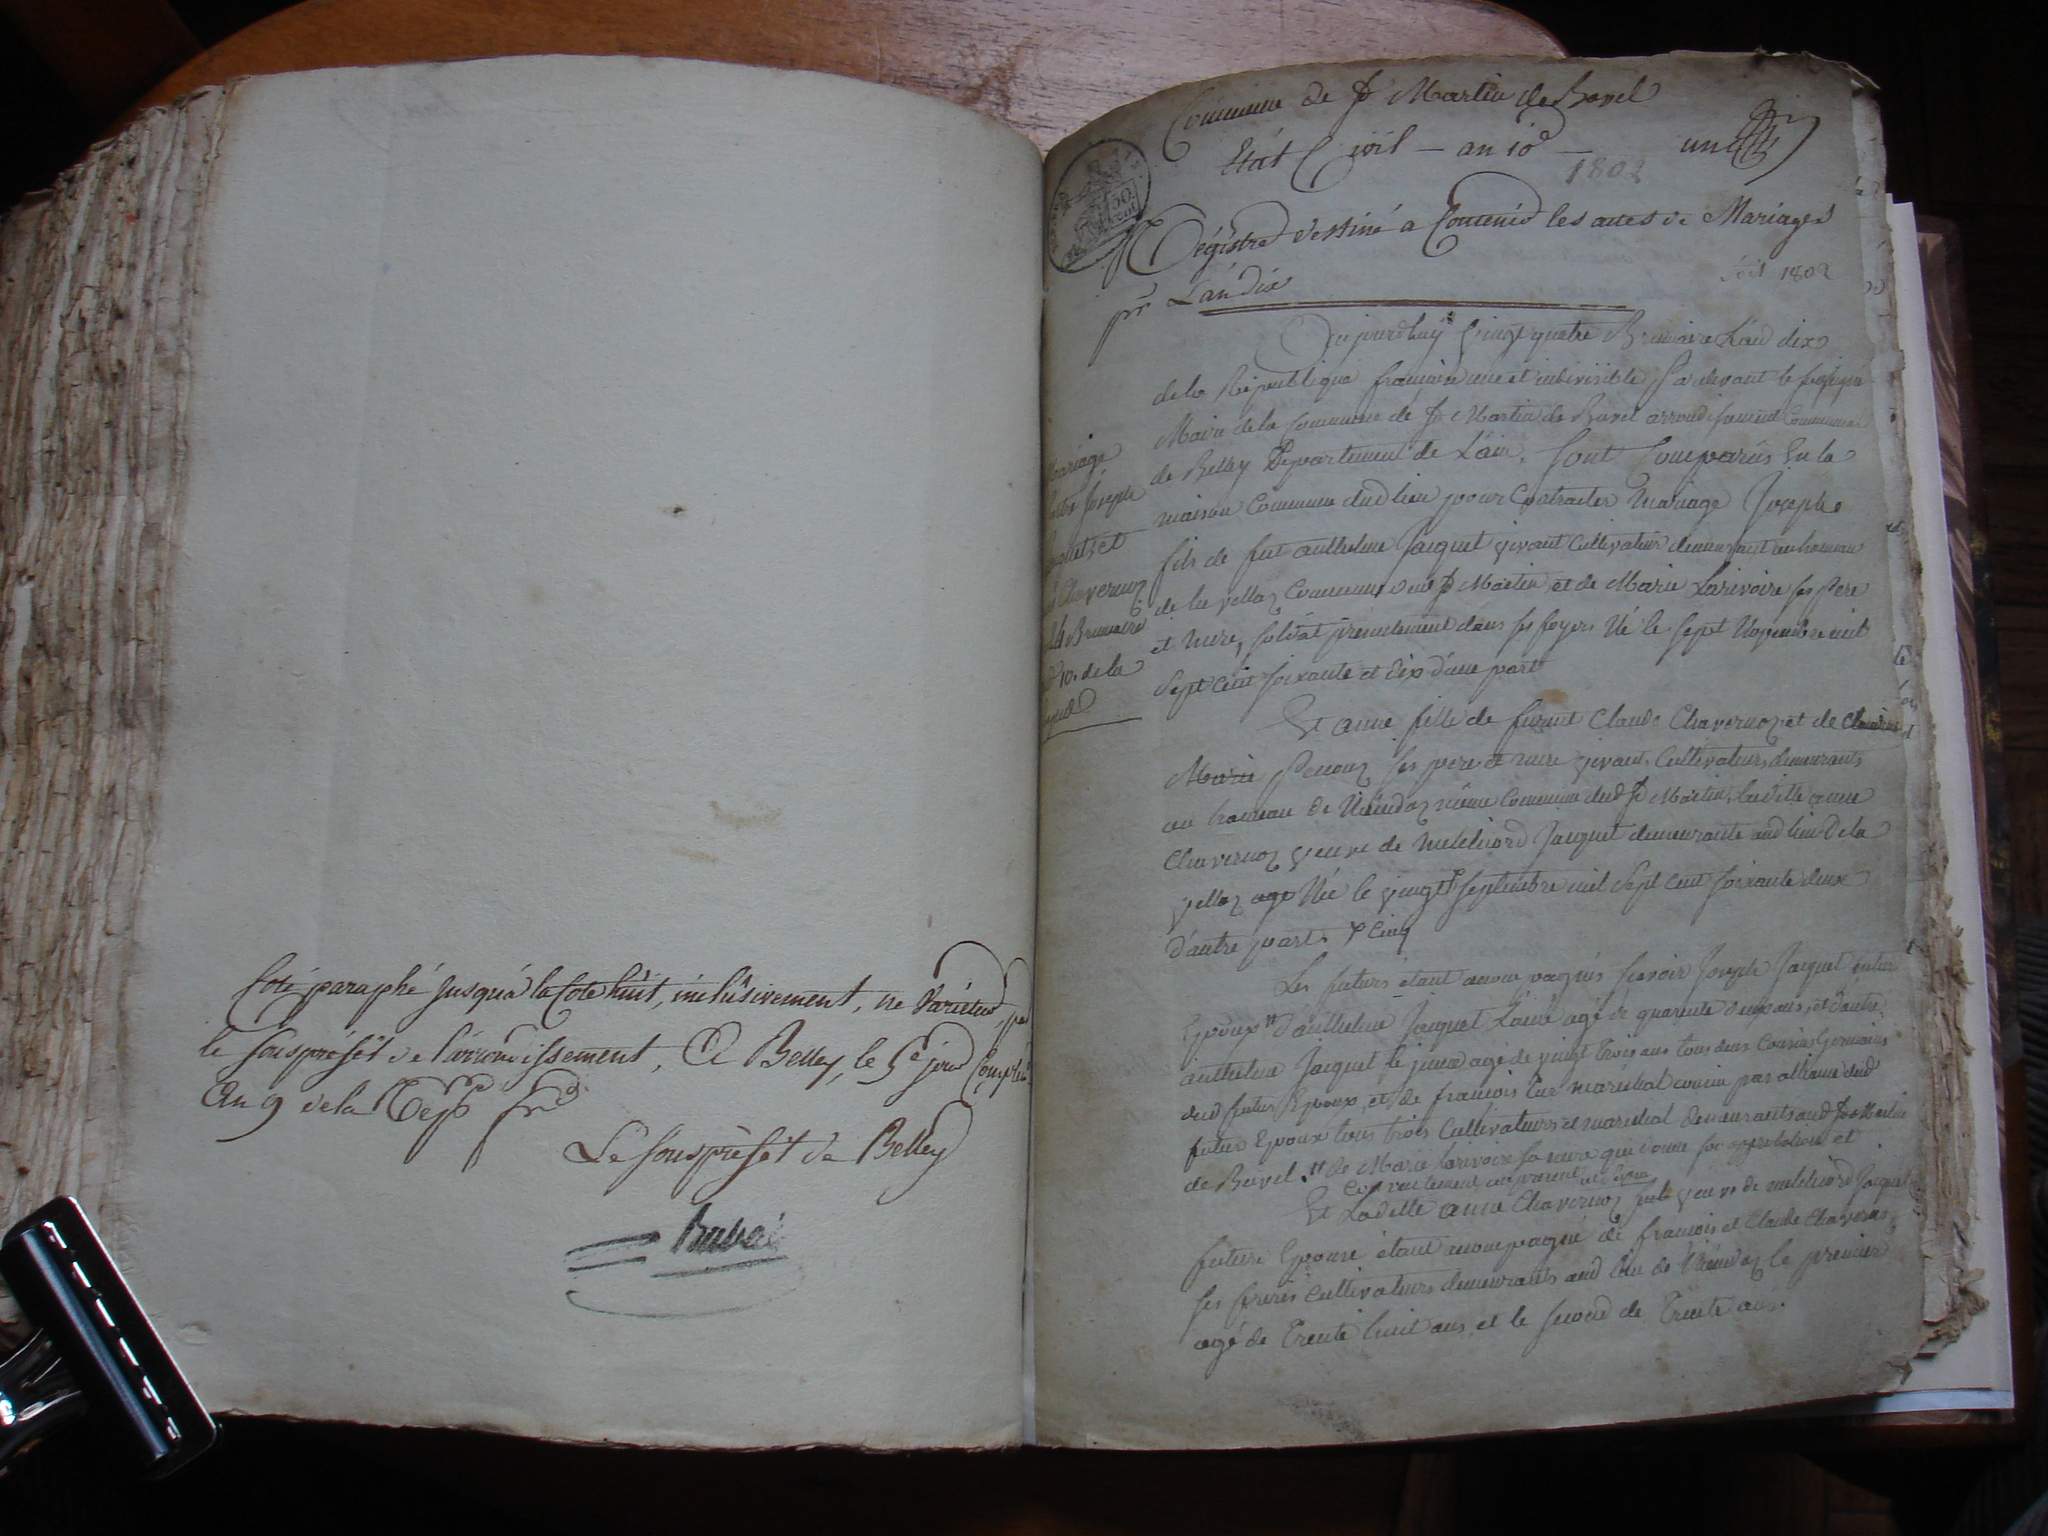 Coté paraphé jusqu'à la Cote huit, inclusivement, ne Varietur, par
le souspréfèt de l'arrondissement, A Belley, le 5e jour Complé.
An 9 de la Rép fr
Le souspréfèt de Belley
Commune de St Martin de Bavel
Etat Civil — an 10 — un
1802
Régistre destiné a Contenir les actes de Mariages
pr L'an dix
1802
Mariage
Joseph
Jacquet et
Chavernoz
24 Brumaire
10. de la
Aujourdhuy vingt quatre Brumaire L'an dix
de la République francaise une et indivisible, Pa devant le
Maire de la Commune de St Martin de Bavel arrondissement Communal
de Belley Département de L'ain. Sont Comparus En la
maison Commune dud lieu pour Contracter Mariage Joseph
fils de feu anthelme Jacquet vivant Cultivateur demeurant au hameau
de la vellaz Commune dud St Martin et de Marie Larivoire ses Pere
et Mere, soldat présentement dans ses foyers Né le sept Novembre mil
Sept Cent soixante et dix d'une part
Et anne fille de furent Claude Chavernoz et de
Marie Perroz ses pere et mere vivant Cultivateurs demeurants
au hameau de même Commune dud St Martin, ladite anne
Chavernoz veuve de Melchiord Jacquet demeurante aud lieu de la
vellaz age Née le vingt septembre mil Sept Cent soixante deux
d'autre part. Cinq
Les futurs étant accompagnés scavoir Joseph Jacquet futur
Epoux d'anthelme Jacquet L'ainé agé de quarente deux ans, et d'autre
anthelme Jacquet le jeune agé de vingt trois ans tous deux Cousins Germains
dud futur Epoux, et de francois maréchal cousin par alliance dud
futur Epoux tous trois Cultivateurs et maréchal demeurants aud St Martin
de Bavel. de Marie Larivoire sa mere qui donne son approbation et
Consentement au présent
Et Ladite anne Chavernoz veuve de Melchiord Jacquet
future Epouse étant accompagné de francois et Claude Chavernoz
ses freres Cultivateurs demeurants aud lieu de le premier
agé de Trente huit ans et le second de Trente ans.